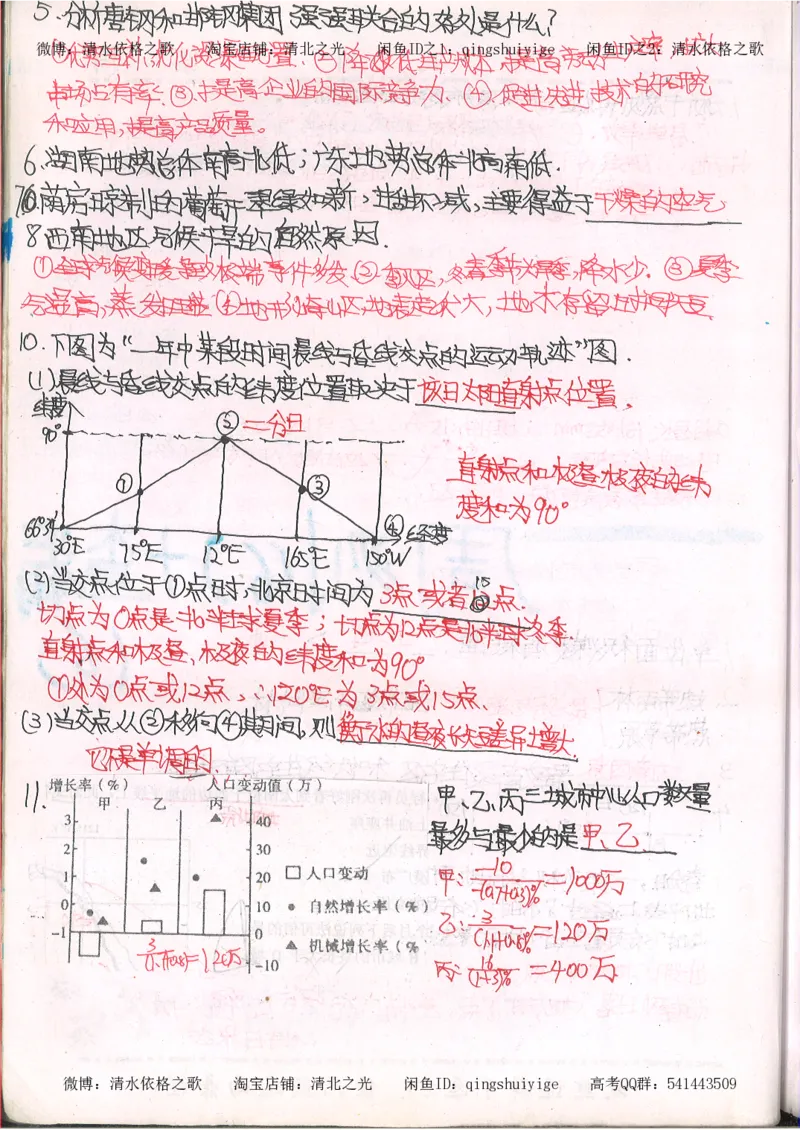 5.分析唐钢和邯钢集团强强联合的好处是什么?
微博：清水依格之歌 淘宝店铺：清北之光 闲鱼ID之1：qingshuiyige 闲鱼ID之2：清水依格之歌
市场占有率.③提高企业的国际竞争力.④促进先进技术的研究
和应用,提高产品质量。
6.湖南地势总体南高北低；广东地势总体北高南低.
荫房晾制的葡萄干翠绿如新,甜味不减,主要得益于干燥的空气
8西南地区气候干旱的自然原因.
季风区,冬春季为旱季,降水少.③夏季
10.下图为"一年中某段时间晨线与昏线交点的运动轨迹"图.
(1)晨线与昏线交点的纬度位置取决于该日太阳直射点位置,
纬度
90°
② 二分日
①
③
④ 经度
直射点和极昼极夜的纬
度和为90°
66°34′
30°E 75°E 12°E 165°E 150°W
(2)当交点位于①点时,北京时间为3点或者15点.
切点为0点是北半球夏季；切点为12点是北半球冬季.
直射点和极昼、极夜的纬度和为90°
①处为0点或12点,∴120°E为3点或15点.
(3)当交点从③移向④其期间,则衡水的昼夜长短差异增大.
不是单调的.
11.
增长率(%) 人口变动值(万)
甲 乙 丙
3 2 1 0 -1
40 30 20 10 0 -10
人口变动
自然增长率(%)
机械增长率(%)
=120万
甲、乙、丙三城市中人口数量
最多与最少的是甲、乙
甲: =1000万
乙: =120万
丙: 16/(1+3)% =400万
微博：清水依格之歌 淘宝店铺：清北之光 闲鱼ID：qingshuiyige 高考QQ群：541443509